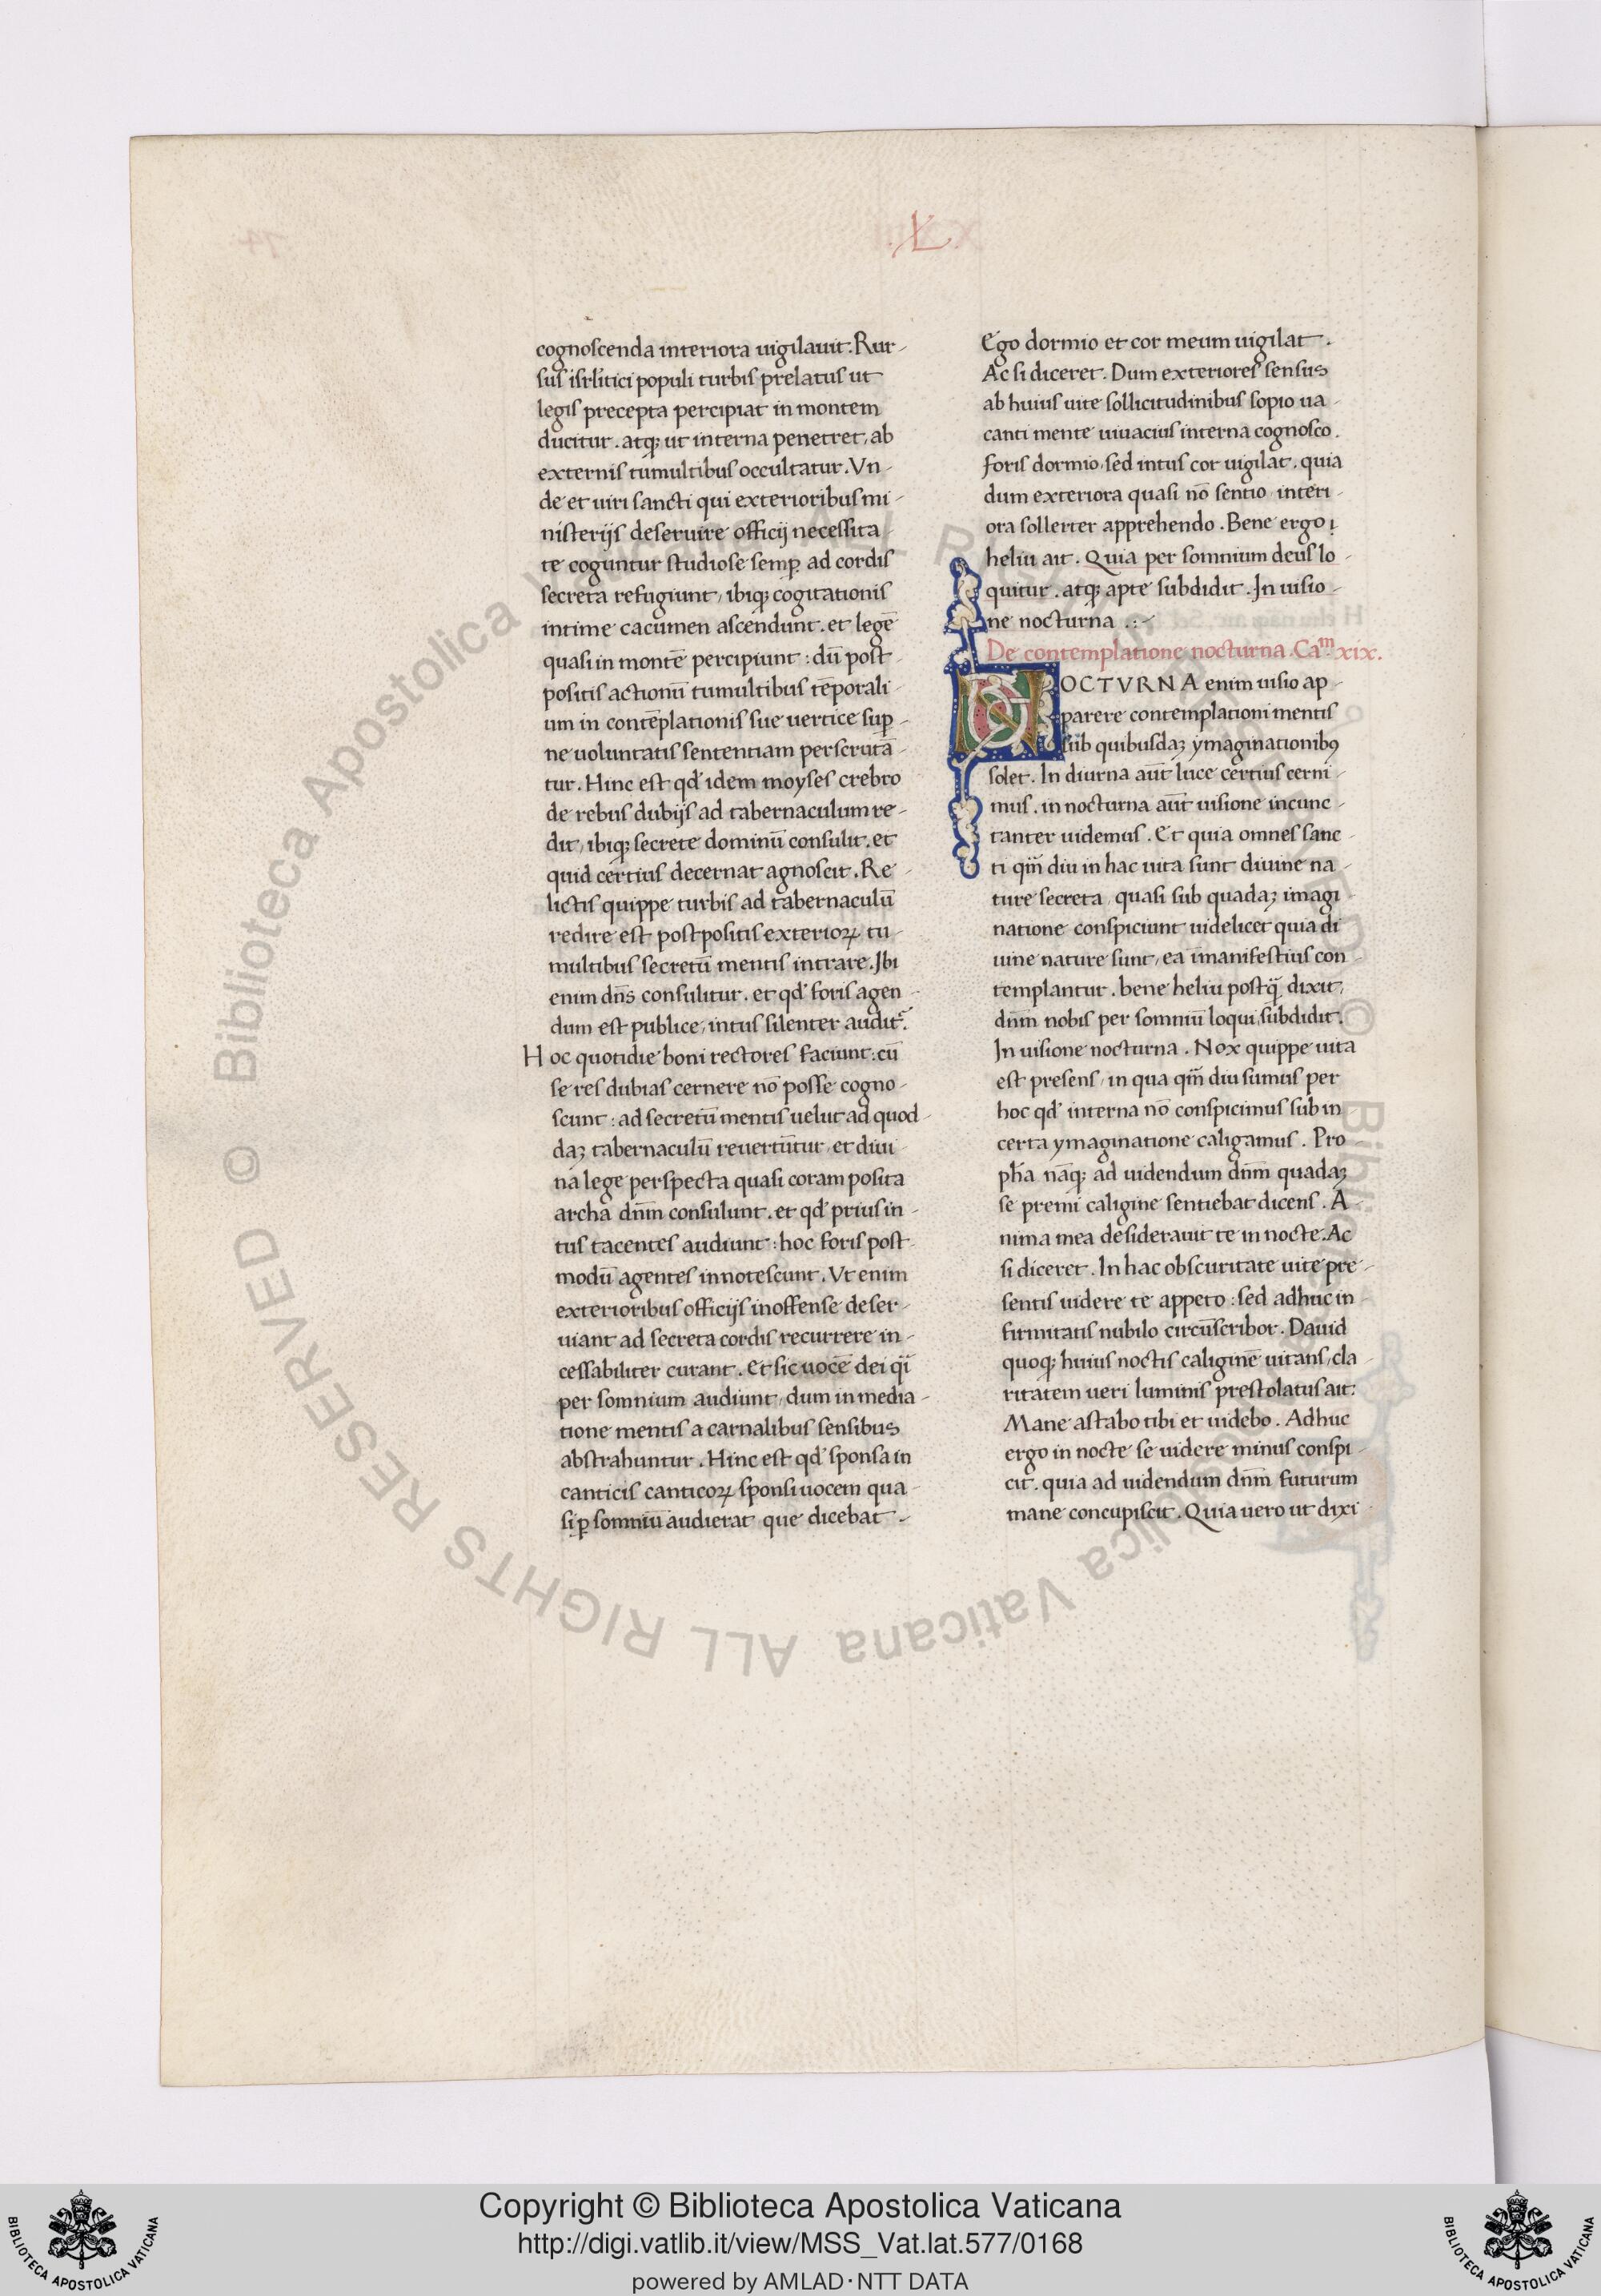 L
cognoscenda interiora uigilauit. Rur-
sus isrl̄itici populi turbis prelatus ut
legis precepta percipiat in montem
ducitur. atq; ut interna penetret, ab
externis tumultibus occultatur. Vn-
de et uiri sancti qui exterioribus mi-
nisterijs deseruire officij necessita
te coguntur studiose semp̱ ad cordis
secreta refugiunt, ibiq; cogitationis
intime cacumen ascendunt. et legē
quasi in montē percipiunt: dū post
positis actionū tumultibus tēporali-
um in contēplationis sue uertice sup̱-
ne uoluntatis sententiam perscrutā-
tur. Hinc est qd' idem moyses crebro
de rebus dubijs ad tabernaculum re-
dit, ibiq; secrete dominū consulit. et
quid certius decernat agnoscit. Re-
lictis quippe turbis ad tabernaculū
redire est postpositis exterioꝝ tu-
multibus secretū mentis intrare. Ibi
enim dn̄s consulitur. et qd' foris agen
dum est publice, intus silenter audit᷑.
Hoc quotidie boni rectores faciunt: cū
se res dubias cernere nō posse cogno-
scunt: ad secretū mentis uelut ad quod-
daꝫ tabernaculū reuertūtur, et diui
na lege perspecta quasi coram posita
archa dn̄m consulunt. et qd' prius in-
tus tacentes audiunt: hoc foris post
modū agentes innotescunt. Vt enim
exterioribus officijs inoffense deser-
uiant ad secreta cordis recurrere in-
cessabiliter curant. Et sic uocē dei q̄i
per somnium audiunt, dum in media-
tione mentis a carnalibus sensibus
abstrahuntur. Hinc est qd' sponsa in
canticis canticoꝝ sponsi uocem qua-
si p̱ somniū audierat que dicebat.-
Ego dormio et cor meum uigilat.
Ac si diceret. Dum exteriores sensus
ab huius uite sollicitudinibus sopio ua-
canti mente uiuacius interna cognosco.
foris dormio, sed intus cor uigilat. quia
dum exteriora quasi nō sentio, interi-
ora sollerter apprehendo. Bene ergo
heliu ait. Quia per somnium deus lo-
quitur. atq; apte subdidit. In uisio-
ne nocturna .:-
De contemplatione nocturna. Caᵐ. xix.
NOCTVRNA enim uisio ap-
parere contemplationi mentis
sub quibusdaꝫ ymaginationibꝯ
solet. In diurna aūt luce certius cerni-
mus. in nocturna aūt uisione incunc-
tanter uidemus. Et quia omnes sanc-
ti qm̄ diu in hac uita sunt diuine na-
ture secreta, quasi sub quadaꝫ imagi
natione conspiciunt uidelicet quia di
uine nature sunt, ea īmanifestius con-
templantur. bene heliu postq̄ dixit,
dn̄m nobis per somniū loqui, subdidit.
In uisione nocturna. Nox quippe uita
est presens, in qua qm̄ diu sumus per
hoc qd' interna nō conspicimus sub in
certa ymaginatione caligamus. Pro
ph̄a nāq; ad uidendum dn̄m quadaꝫ
se premi caligine sentiebat dicens. A-
nima mea desiderauit te in nocte. Ac
si diceret. In hac obscuritate uite pre-
sentis uidere te appeto: sed adhuc in
firmitatis nubilo circūscribor. Dauid
quoq; huius noctis caliginē uitans, cla-
ritatem ueri luminis prestolatus ait:
Mane astabo tibi et uidebo. Adhuc
ergo in nocte se uidere minus conspi-
cit. quia ad uidendum dn̄m futurum
mane concupiscit. Quia uero ut dixi
© Biblioteca Apostolica Vaticana ALL RIGHTS RESERVED
Copyright © Biblioteca Apostolica Vaticana
http://digi.vatlib.it/view/MSS_Vat.lat.577/0168
powered by AMLAD·NTT DATA
BIBLIOTECA APOSTOLICA VATICANA
BIBLIOTECA APOSTOLICA VATICANA